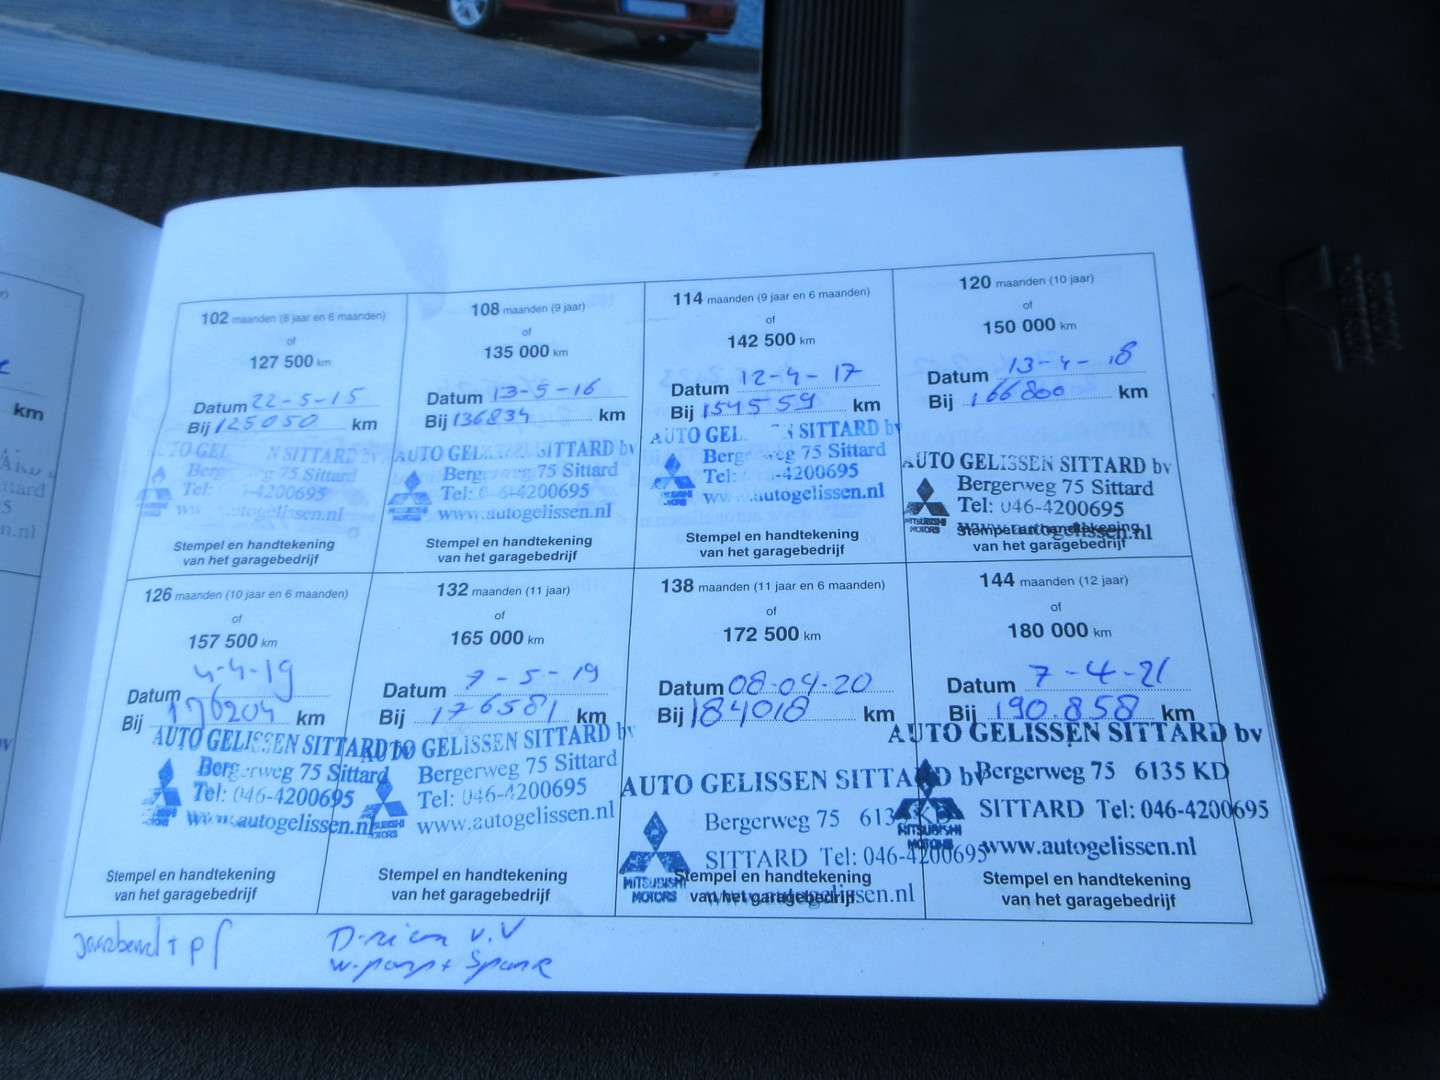 102 maanden (8 jaar en 6 maanden)
of
127 500 km
Datum 22-5-15
Bij 125050 km
AUTO GEL N SITTARD bv
Berg 75 Sittard
Tel: -4200695
ww autogelissen.nl
Stempel en handtekening
van het garagebedrijf
108 maanden (9 jaar)
of
135 000 km
Datum 13-5-16
Bij 136834 km
AUTO GELISSEN SITTARD bv
Bergerweg 75 Sittard
Tel: 046-4200695
www.autogelissen.nl
Stempel en handtekening
van het garagebedrijf
114 maanden (9 jaar en 6 maanden)
of
142 500 km
Datum 12-4-17
Bij 154559 km
AUTO GEL N SITTARD bv
Berge 75 Sittard
Tel: -4200695
www.autogelissen.nl
MITSUBISHI
MOTORS
Stempel en handtekening
van het garagebedrijf
120 maanden (10 jaar)
of
150 000 km
Datum 13-4-18
Bij 166800 km
AUTO GELISSEN SITTARD bv
Bergerweg 75 Sittard
Tel: 046-4200695
www.autogelissen.nl
MITSUBISHI
MOTORS
Stempel en handtekening
van het garagebedrijf
126 maanden (10 jaar en 6 maanden)
of
157 500 km
Datum 4-4-19
Bij 176204 km
AUTO GELISSEN SITTARD bv
Bergerweg 75 Sittard
Tel: 046-4200695
www.autogelissen.nl
Stempel en handtekening
van het garagebedrijf
132 maanden (11 jaar)
of
165 000 km
Datum 7-5-19
Bij 176581 km
AUTO GELISSEN SITTARD bv
Bergerweg 75 Sittard
Tel: 046-4200695
www.autogelissen.nl
MITSUBISHI
MOTORS
Stempel en handtekening
van het garagebedrijf
138 maanden (11 jaar en 6 maanden)
of
172 500 km
Datum 08-04-20
Bij 184018 km
AUTO GELISSEN SITTARD bv
Bergerweg 75 6135 KD
SITTARD Tel: 046-4200695
www.autogelissen.nl
MITSUBISHI
MOTORS
Stempel en handtekening
van het garagebedrijf
144 maanden (12 jaar)
of
180 000 km
Datum 7-4-21
Bij 190.858 km
AUTO GELISSEN SITTARD bv
Bergerweg 75 6135 KD
SITTARD Tel: 046-4200695
www.autogelissen.nl
MITSUBISHI
MOTORS
Stempel en handtekening
van het garagebedrijf
+ pf
D-riem v.V
w-pomp +
km